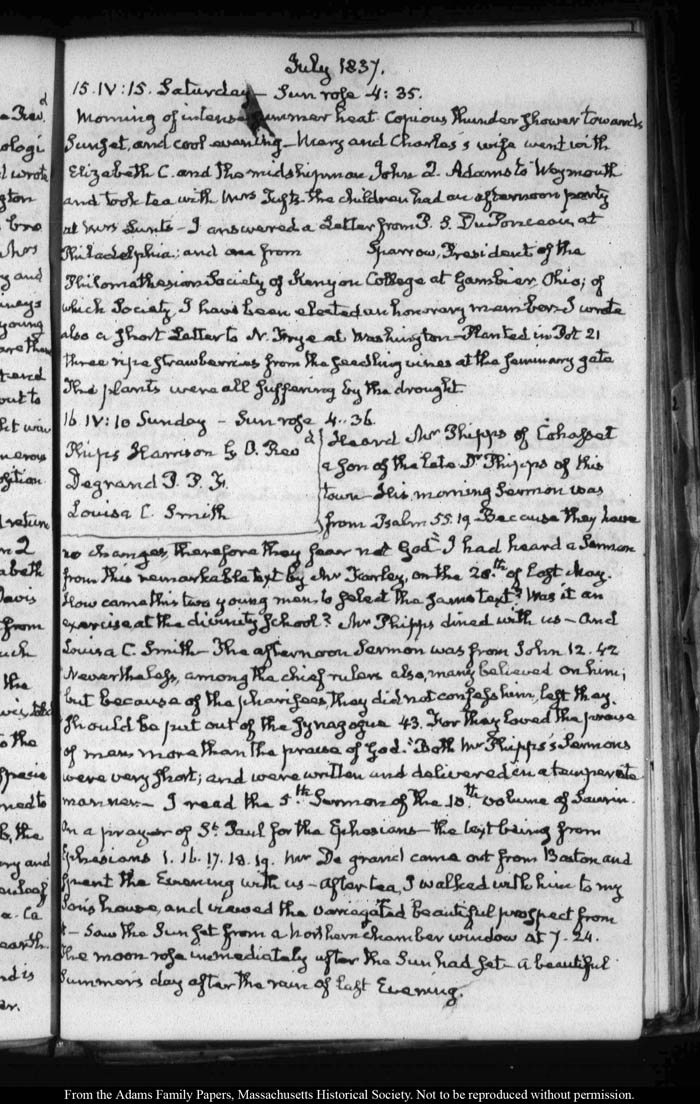 July 1837.
15. IV:15. Saturday — Sun rose 4:35.
Morning of intense summer heat. Copious thunder shower towards
Sunset, and cool evening — Mary and Charles's wife went with
Elizabeth C. and the midshipman John Q. Adams to Weymouth
and took tea with Mrs Tufts. The children had an afternoon party
at Mrs Lunt's — I answered a Letter from P. S. DuPonceau at
Philadelphia; and one from Sparrow, President of the
Philomathesian Society of Kenyon College at Gambier, Ohio; of
which Society I have been elected an honorary member — I wrote
also a short Letter to N. Frye at Washington — Planted in Pot 21
three ripe strawberries from the seedling vines at the seminary gate
The plants were all suffering by the drought.
16. IV:10 Sunday — Sun rose 4..36.
Phips Harrison G. O. Revd
Degrand P. P. F.
Louisa C. Smith
Heard Mr Phipps of Cohasset
a son of the late Dr Phipps of this
town — His morning Sermon was
from Psalm 55.19. Because they have
no changes, therefore they fear not God" — I had heard a Sermon
from this remarkable text by Mr Farley, on the 28th of last May.
How came this two young men to select the same text? Was it an
exercise at the divinity School? Mr Phipps dined with us — and
Louisa C. Smith — The afternoon Sermon was from John 12.42
"Nevertheless, among the chief rulers also, many believed on him;
but because of the pharisees they did not confess him, lest they
should be put out of the Synagogue 43. For they loved the praise
of men more than the praise of God." Both Mr Phipps's Sermons
were very short; and were written and delivered in a temperate
manner — I read the 5th Sermon of the 10th volume of Saurin.
On a prayer of St Paul for the Ephesians — the text being from
Ephesians 1.16.17.18.19. Mr Degrand came out from Boston and
spent the Evening with us — after tea, I walked with him to my
Son's house, and viewed the variegated beautiful prospect from
it — Saw the Sun set from a Northern chamber window at 7-24.
The moon rose immediately after the Sun had set — a beautiful
Summer's day after the rain of last Evening.
From the Adams Family Papers, Massachusetts Historical Society. Not to be reproduced without permission.